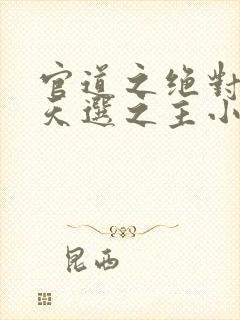 官道之绝對
天選之主小
昆西